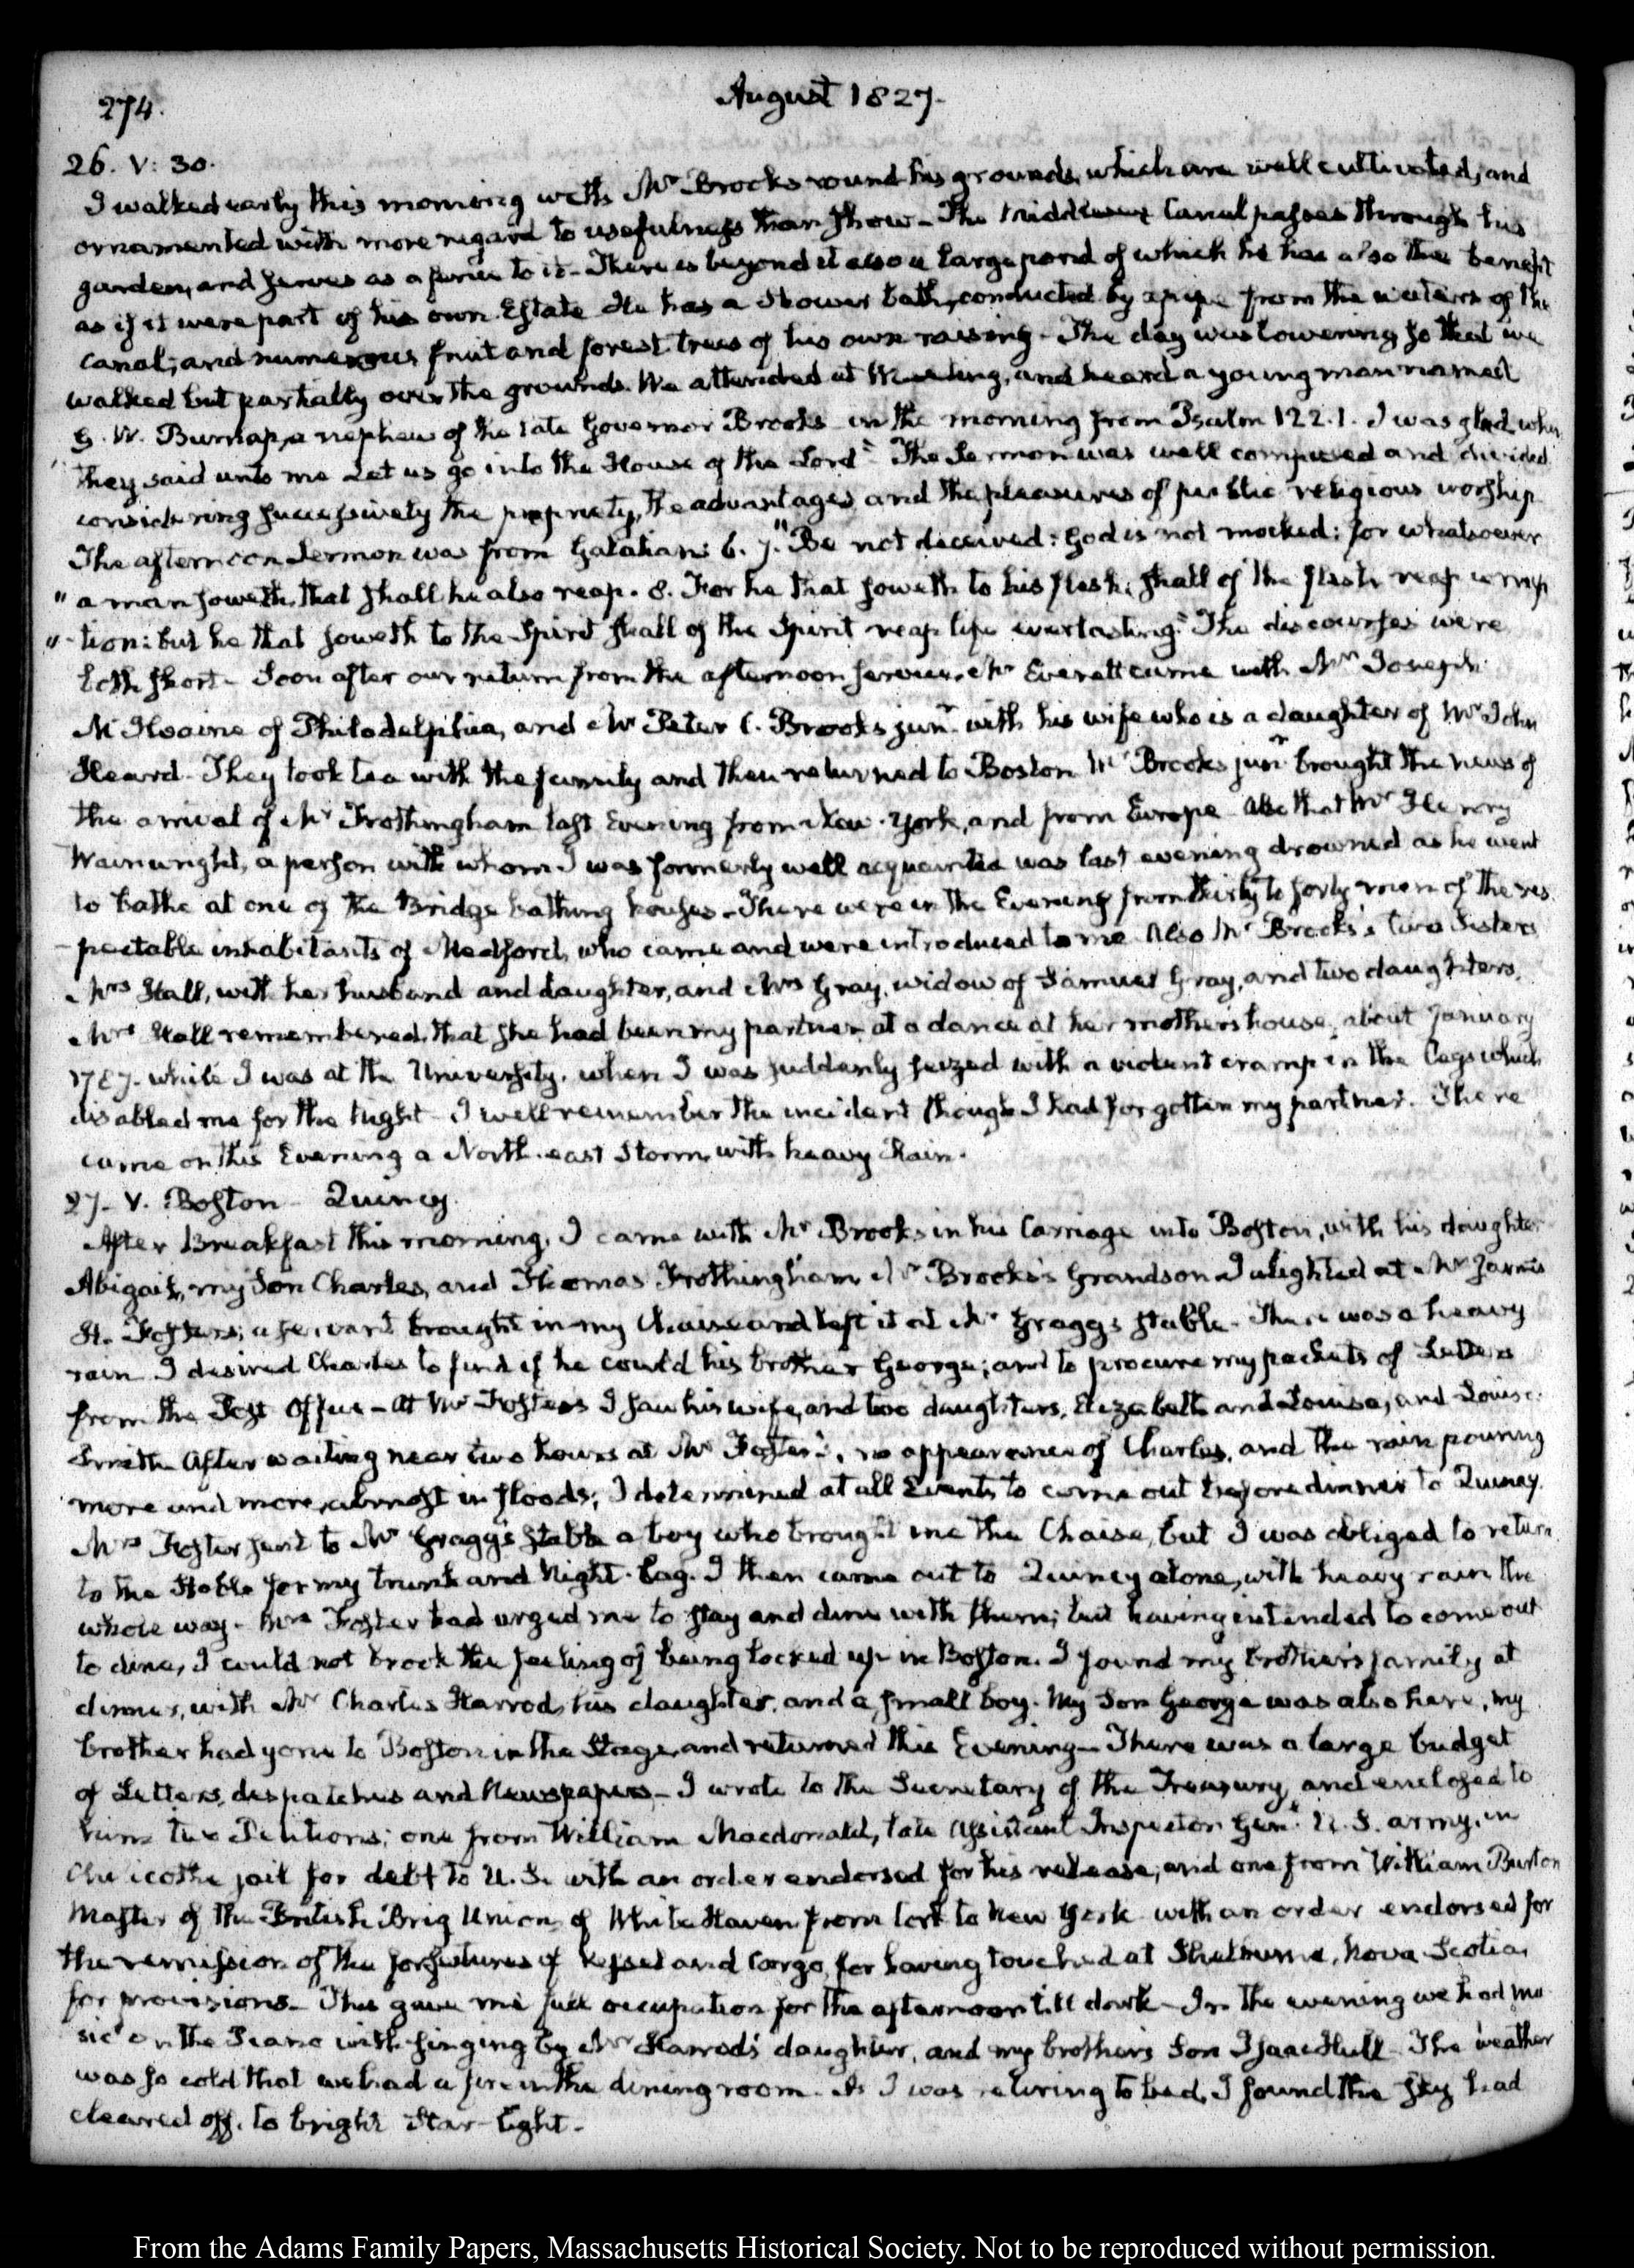 274.
August 1827.
26. V: 30.
I walked early this morning with Mr Brooks round his grounds, which are well cultivated, and
ornamented with more regard to usefulness than show— The Middlesex Canal passes through his
garden, and serves as a to it— There is beyond it also a large pond of which he has also the benefit
as if it were part of his own Estate He has a Shower bath, conducted by a pipe from the waters of the
canal; and numerous fruit and forest trees of his own raising— The day was lowering so that we
walked but partially over the grounds. We attended at Meeting, and heard a young man named
G. W. Burnap, a nephew of the late Governor Brooks in the morning from Psalm 122.1. I was glad when
"they said unto me Let us go into the House of the Lord" The Sermon was well composed and divided
considering successively the propriety, the advantages and the pleasures of public religious worship
The afternoon Sermon was from Galatians 6. 7. "Be not deceived: God is not mocked: for whatsoever
" a man soweth, that shall he also reap. 8. For he that soweth to his flesh, shall of the flesh reap corrup
"-tion: but he that soweth to the Spirit shall of the Spirit reap life everlasting." The discourses were
both short— Soon after our return from the afternoon service, Mr Everett came with Mr Joseph
McIlvaine of Philadelphia, and Mr Peter C. Brooks junr with his wife who is a daughter of Mr John
Heard. They took tea with the family and then returned to Boston Mr Brooks junr brought the news of
the arrival of Mr Frothingham last Evening from New-York, and from Europe Also that Mr Henry
Wainwright, a person with whom I was formerly well acquainted was last evening drowned as he went
to bathe at one of the Bridge bathing houses— There were in the Evening from thirty to forty men of the res
-pectable inhabitants of Medford, who came and were introduced to me Also Mr Brooks's two Sisters
Mrs Hall, with her husband and daughter, and Mrs Gray, widow of Samuel Gray, and two daughters.
Mrs Hall remembered that she had been my partner at a dance at her mother's house, about January
1787. while I was at the University, when I was suddenly seized with a violent cramp in the Legs which
disabled me for the Night— I well remember the incident though I had forgotten my partner. There
came on this Evening a North-east Storm, with heavy Rain.
27. V. Boston— Quincy
After Breakfast this morning, I came with Mr Brooks in his Carriage into Boston, with his daughter
Abigail, my Son Charles, and Thomas Frothingham Mr Brooks's Grandson I alighted at Mr James
H. Foster's; a servant brought in my Chaise and left it at Mr Gragg's stable— There was a heavy
rain I desired Charles to find if he could his brother George; and to procure my packets of Letters
from the Post Office— At Mr Foster's I saw his wife, and two daughters, Elizabeth and Louisa, and Louisa
Smith After waiting near two hours at Mr Foster's, no appearance of Charles, and the rain pouring
more and more, almost in floods; I determined at all Events to come out before dinner to Quincy.
Mrs Foster sent to Mr Gragg's Stable a boy who brought me the Chaise, but I was obliged to return
to the Stable for my trunk and Night-bag. I then came out to Quincy alone, with heavy rain the
whole way— Mrs Foster had urged me to stay and dine with them; but having intended to come out
to dine, I could not brook the feeling of being locked up in Boston. I found my brother's family at
dinner, with Mr Charles Harrod, his daughter, and a small boy. My Son George was also here, my
brother had gone to Boston in the Stage, and returned this Evening— There was a large budget
of Letters, despatches and Newspapers— I wrote to the Secretary of the Treasury, and enclosed to
him two Petitions; one from William Macdonald, late Assistant Inspector Genl U. S. army, in
Chilicothe jail for debt to U. S. with an order endorsed for his release; and one from William Burton
Master of the British Brig Union, of White Haven from Cork to New York with an order endorsed for
the remission of the forfeitures of Vessel and Cargo, for having touched at Shelburne, Nova Scotia,
for provisions— This gave me full occupation for the afternoon till dark— In the evening we had mu
sic on the Piano with singing by Mr Harrod's daughter, and my brother's Son Isaac Hull The weather
was so cold that we had a fire in the dining room. As I was retiring to bed, I found the sky had
cleared off, to bright Star-light—
From the Adams Family Papers, Massachusetts Historical Society. Not to be reproduced without permission.